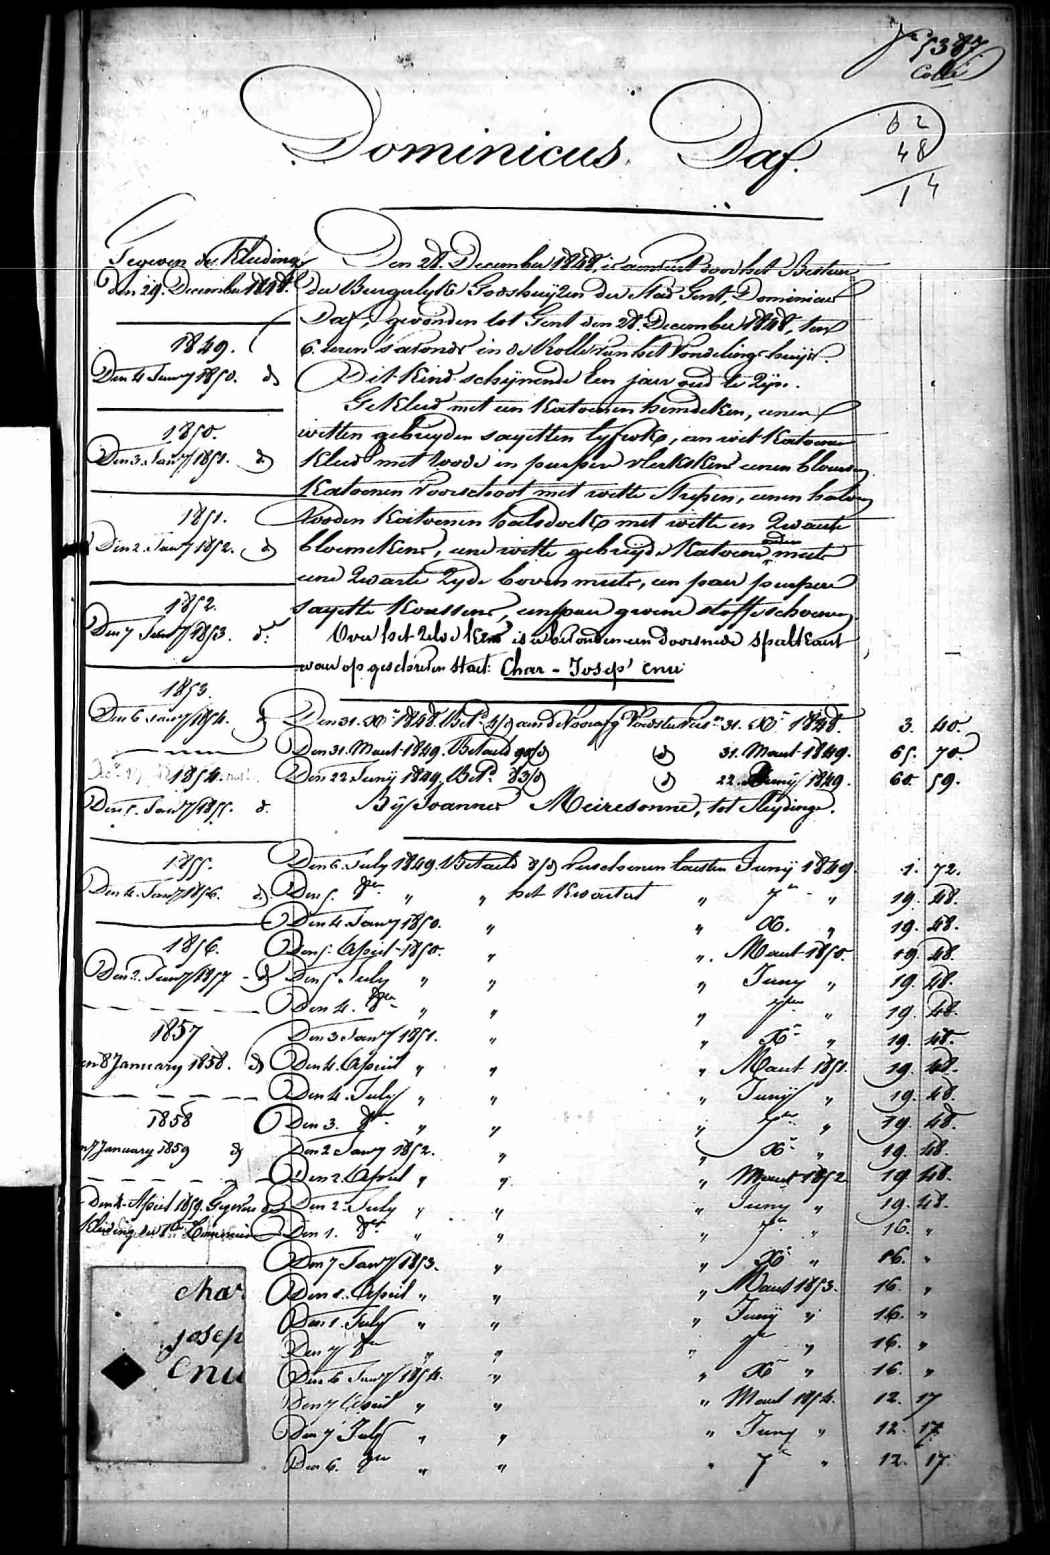 5387
62
48
14
Dominicus Daf.
Gegeven de Kleeding
den 29. December 1848.
1849.
Den 4 Januÿ 1850. d°
1850.
Den 3. Januÿ 1851. d°
1851.
Den 2. Januÿ 1852. d°
1852.
Den 7 Januÿ 1853. d°
1853.
Den 6 Januÿ 1854. d°
1854.
Den 5. Januÿ 1855. d°
1855.
Den 4. Januÿ 1856. d°
1856.
Den 2. Januÿ 1857 - d°
1857
en 8 January 1858. d°
1858
7 January 1859 d°
Den 4. April 1859. Gegeven de
Kleeding der 1te Communie
Char
Josep
Enu
Den 28. December 1848, is aanveert door het Bestuer
der Burgerlyke Godshuyzen der Stad Gent, Dominicus
Daf, gevonden tot Gent den 28. December 1848, ten
6. uren 's avonds in de Rolle van het Vondelinge-huys.
Dit Kind schynende Een jaar oud te zyn.
Gekleed met een Katoenen hemdeken, eenen
witten gebreyden sayetten lyfrok, een wit Katoenen
Kleed met roode en purper vlekskens eenen blauwen
Katoenen voorschoot met witte strepen, eenen halven
rooden Katoenen halsdoek met witte en zwarte
bloemekens, eene witte gebreyde Katoene onder mutse
eene zwarte zyde boven mutse, een paar purpere
sayette Koussens, een paar groene stoffe schoenen.
Over het zelve Kind is er bevonden een doorsnede spelkaart
waar op geschreven staet: Char - Josep' Enu
Den 31. Xbr 1848. Bet.d aan de Voorsz. 31. Xbr 1848. 3. 40.
Den 31. Maert 1849. Betaeld d° 31. Maert 1849. 65. 70.
Den 22 Junÿ 1849. Bet.d d° 22. Junÿ 1849. 60. 59.
Bÿ Joannes Meiresonne, tot Sleydinge.
Den 6. July 1849. Betaeld verschenen laesten Junÿ 1849. 1. 72.
Den 5. 8br " " het Kwartael " 7br " 19. 48.
Den 4. Januÿ 1850. " " X. " 19. 48.
Den 5. April 1850. " " Maert 1850. 19. 48.
Den 5. July " " " Juny " 19. 48.
Den 4. 8br " " " 7br " 19. 48.
Den 3 Januÿ 1851. " " Xbr " 19. 48.
Den 4. April " " " Maert 1851. 19. 48.
Den 4. July " " " Junÿ " 19. 48.
Den 3. 8br " " " 7br " 19. 48.
Den 2 Januÿ 1852. " " Xbr " 19. 48.
Den 2. April " " " Maert 1852 19. 48.
Den 2. July " " " Juny " 19. 48.
Den 1. 8br " " " 7br " 16. "
Den 7 Januÿ 1853. " " Xbr " 16. "
Den 1. April " " " Maert 1853. 16. "
Den 1. July " " " Junÿ " 16. "
Den 7 8br " " " 7br " 16. "
Den 6 Januÿ 1854. " " Xbr " 16. "
Den 7 April " " " Maert 1854. 12. 17
Den 7 July " " " Juny " 12. 17.
Den 6. 8br " " " 7br " 12. 17.